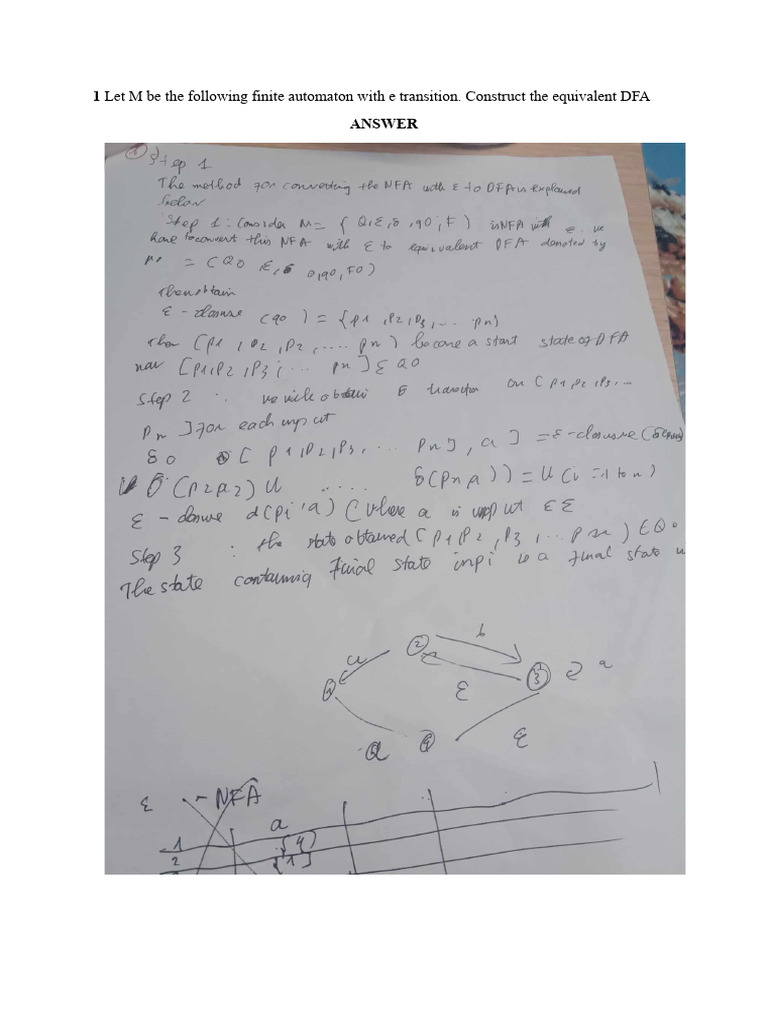 1 Let M be the following finite automaton with e transition. Construct the equivalent DFA
ANSWER
Step 1
The method for converting the NFA with ε to DFA is explained
below
Step 1: Consider M = { Q, Σ, δ, q0, F ) is NFA with ε. we
have to convert this NFA with ε to equivalent DFA denoted by
= ( Q0 Σ, δ 0, q0, F0 )
Then obtain
ε - closure (q0) = {p1, p2, p3, ... pn}
then [p1, p2, p2, .... pn) become a start state of DFA
now [p1, p2, p3, ... pn] ε Q0
Step 2 : we obtain δ transition on [p1 p2, p3, ...
pn] for each input
δ0 [ p1, p2, p3, ... pn], a ] = ε - closure (
δ (p2 a2) U ..... δ(pn a)) = U (i = 1 to n)
ε - closure d(pi, a) (where a is input ε Σ
Step 3 : the state obtained [p1 p2, p3, ... pn) ε Q0
The state containing final state in pi is a final state
a 2 b
3 a
ε
4 ε
ε - NFA
a
1 {4}
2 {1}